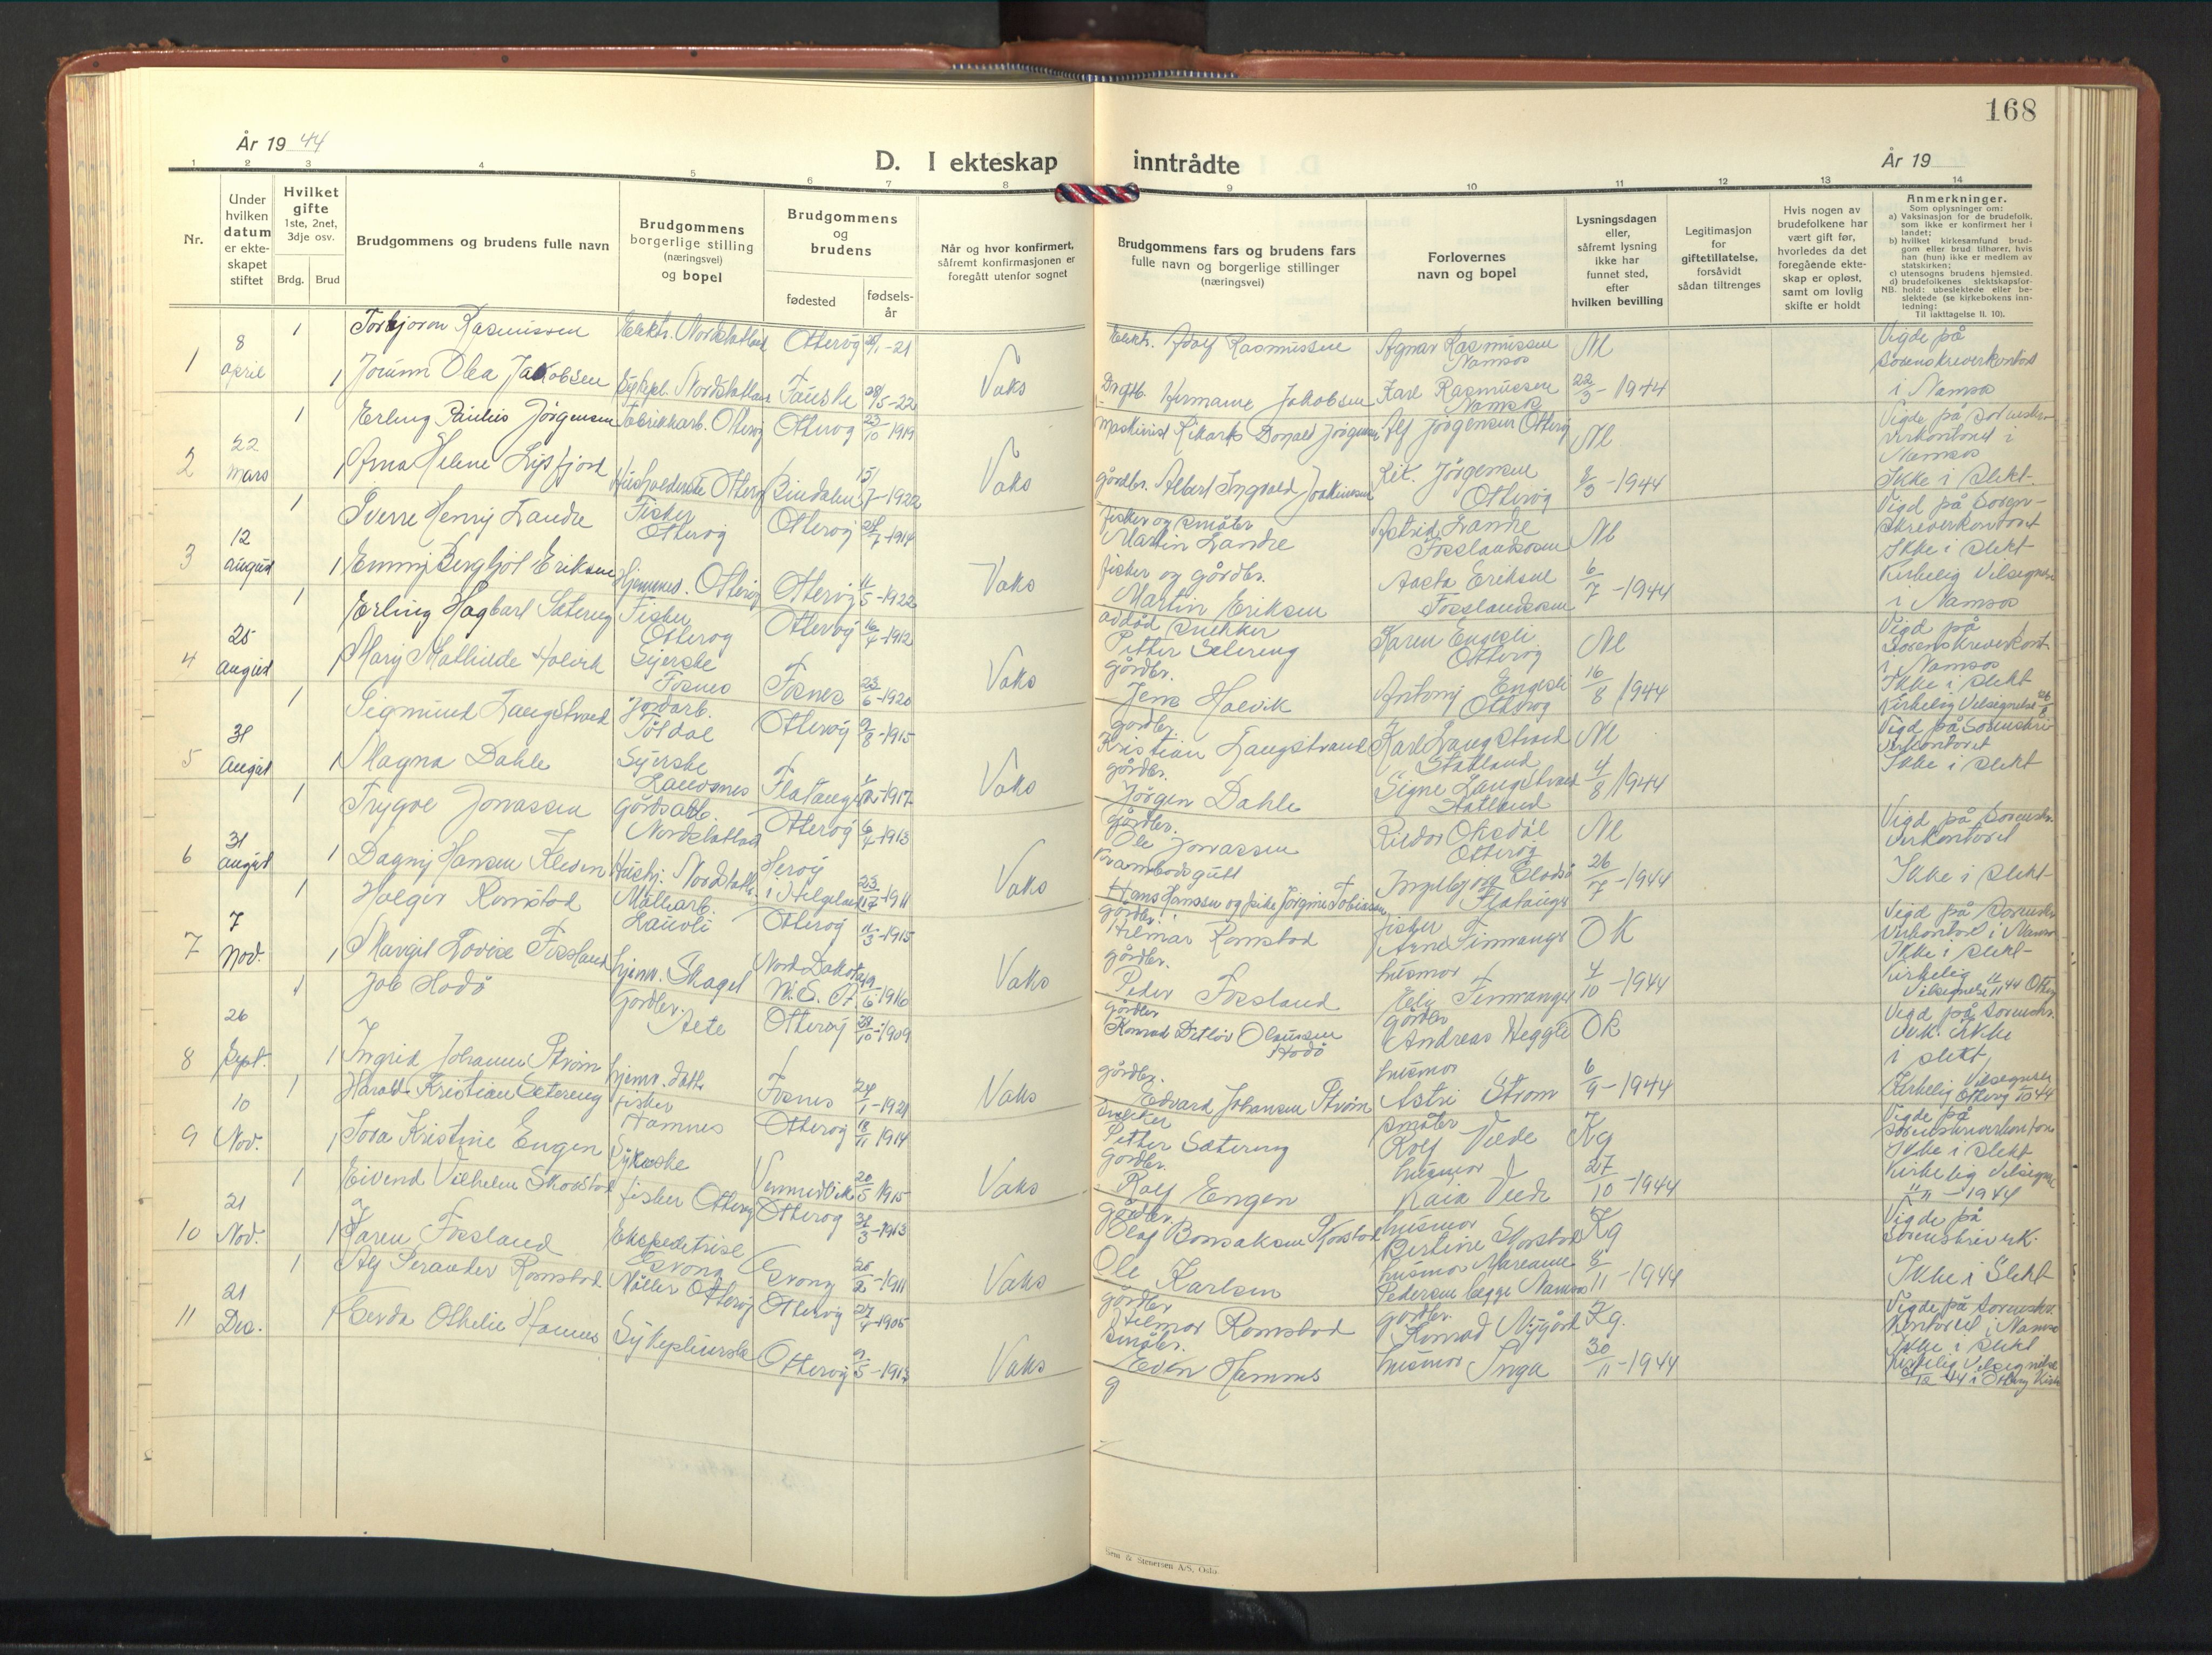 168
År 19 44
D. I ekteskap inntrådte
År 19
1 2 3 4 5 6 7 8 9 10 11 12 13 14
Nr.
Under hvilken datum er ekte-skapet stiftet
Hvilket gifte
1ste, 2net, 3dje osv.
Brdg. Brud
Brudgommens og brudens fulle navn
Brudgommens borgerlige stilling (næringsvei) og bopel
Brudgommens og brudens
fødested
fødsels-år
Når og hvor konfirmert, såfremt konfirmasjonen er foregått utenfor sognet
Brudgommens fars og brudens fars fulle navn og borgerlige stillinger (næringsvei)
Forlovernes navn og bopel
Lysningsdagen eller, såfremt lysning ikke har funnet sted, efter hvilken bevilling
Legitimasjon for giftetillatelse, forsåvidt sådan tiltrenges
Hvis nogen av brudefolkene har vært gift før, hvorledes da det foregående ekte-skap er opløst, samt om lovlig skifte er holdt
Anmerkninger.
Som oplysninger om:
a) Vaksinasjon for de brudefolk, som ikke er konfirmert her i landet;
b) hvilket kirkesamfund brud-gom eller brud tilhører, hvis han (hun) ikke er medlem av statskirken;
c) utensogns brudens hjemsted.
d) brudefolkenes slektskapsfor-hold: ubeslektede eller be-slektede (se kirkebokens inn-ledning:
NB. Til iakttagelse II. 10).
1
8 april
1 Torbjørn Rasmussen Elektr. Nordstatland Otterøy -21
1 Jorunn Olea Jakobsen Nordstatland Fauske 28/5-22
Vaks
Elektr. Adolf Rasmussen
Hermann Jakobsen
Agnar Rasmussen Namsos
Karl Rasmussen Namsos
M 22/3-1944
Vigde på Sorenskriverkontoret i Namsos
2
22 mars
1 Erling Paulus Jørgensen Fabrikkarb. Otterøy Otterøy 23/10 1919
1 Arna Helene Lysfjord Otterøy Bindalen 15/7-1922
Vaks
Maskinist Rikard Donald Jørgensen
gårdbr. Albert Ingvald Joakimsen
Alf Jørgensen Otterøy
Rik. Jørgensen Otterøy
M 8/3-1944
Vigde på Sorenskriverkontoret i Namsos
Ikke i slekt.
3
12 august
1 Sverre Henry Landre Fisker Otterøy Otterøy 1914
1 Emmy Bergljot Eriksen Hjemmev. Otterøy Otterøy 11/5-1922
Vaks
fisker og småbr. Martin Landre
fisker og gårdbr. Martin Eriksen
Astrid Landre Fosslandsosen
Aasta Eriksen Fosslandsosen
M 6/7-1944
Vigd på Sorenskriverkontoret
Ikke i slekt
Kirkelig Velsignelse i Namsos
4
25 august
1 Erling Hagbart Sætereng Fisker Otterøy Otterøy 16/4-1912
1 Mary Mathilde Holvik Syerske Fosnes Fosnes 23/6-1920
Vaks
avdød snekker Petter Setereng
Gårdbr. Jens Holvik
Karen Engesli Otterøy
Antony Engesli Otterøy
M 16/8 1944
Vigd på Sorenskriverkont. i Namsos
Ikke i slekt
Kirkelig Velsignelse
5
31 august
1 Sigmund Langstrand Jordarb. Otterøy 9/8-1915
1 Magna Dahle Syerske Flatanger 1917
Vaks
gårdbr. Kristian Langstrand
gårdbr. Jørgen Dahle
Karl Langstrand Statland
Signe Langstrand Statland
M 4/8 1944
Vigd på Sorenskriverkontoret
Ikke i slekt
6
31 august
1 Trygve Jonassen Gårdsarb. Nordstatland Otterøy 1913
1 Dagny Hansen Husbj. Nordstatl. Herøy i Helgeland 1911
Vaks
Gårdbr. Ole Jonassen
Krambodgutt Hans Hanssen og pike Jørgine Tobiassen
Otterøy
Ingebjørg Flatanger
M 26/7-1944
Vigd på Sorenskr.verkontoret
Ikke i slekt
7
7 Nov.
1 Holger Romstad Møllearb. Lauvli Otterøy 11/3-1915
1 Margit Lovise Fossland hjemv. Skaget Nord Dakota 1916
Vaks
gårdbr. Hilmar Romstad
gårdbr. Peder Fossland
fisker Arne Finvanger
husmor Finvanger
OK 4/10-1944
Vigd på Sorenskr.verkontoret i Namsos
Ikke i slekt
Kirkelig Velsignelse
8
26 Sept.
1 Job Hodø Gårdbr. Aete Otterøy 1909
1 Ingrid Johanne Strøm hjemv. datt. Fosnes 24/1-1921
Vaks
Gårdbr. Konrad Detlov Olaussen Hodø
gårdbr. Edvard Johansen Strøm
gårdbr. Andreas Heggli
husmor Astri Strøm
OK 6/9-1944
Vigd på Sorenskr.verk.
Ikke i slekt,
Kirkelig Velsignelse Otterøy
9
10 Nov.
1 Harald Kristian Sætereng fisker Hamnes Otterøy 18/11 1914
1 Tora Kristine Engen Vemundvik 20/5 1915
Vaks
Snekker Petter Sætereng
Gårdbr. Rolf Engen
småbr. Rolf Veide
husmor Kaia Veide
Kg 27/10-1944
Vigde på Sorenskriverkontoret
Ikke i slekt
Kirkelig Velsignelse 11/11-1944
10
21 Nov.
1 Eivind Vilhelm Skorstad fisker Otterøy Otterøy 31/3-1913
1 Karen Fossland Ekspeditrise 1911
Vaks
Gårdbr. Olaf Bonsaksen Skorstad
Ole Karlsen
husmor Bertine Skorstad
husmor Mareanne Pedersen begge Namsos
Kg 8/11-1944
Vigde på Sorenskriverk.
Ikke i Slekt
11
21 Des.
1 Alf Romstad Møller Otterøy Otterøy 1905
1 Gerda Othelie Hamnes Sykepleierske Otterøy 1913
Vaks
Gårdbr. Hilmar Romstad
småbr. Even Hamnes
gårdbr. Konrad Nygård
husmor Inga
Kg. 30/11-1944
Vigde på Sorenskr.kontoret i Namsos
Ikke i slekt
Kirkelig Velsignelse i Otterøy Kirke
& Stenersen A/S, Oslo